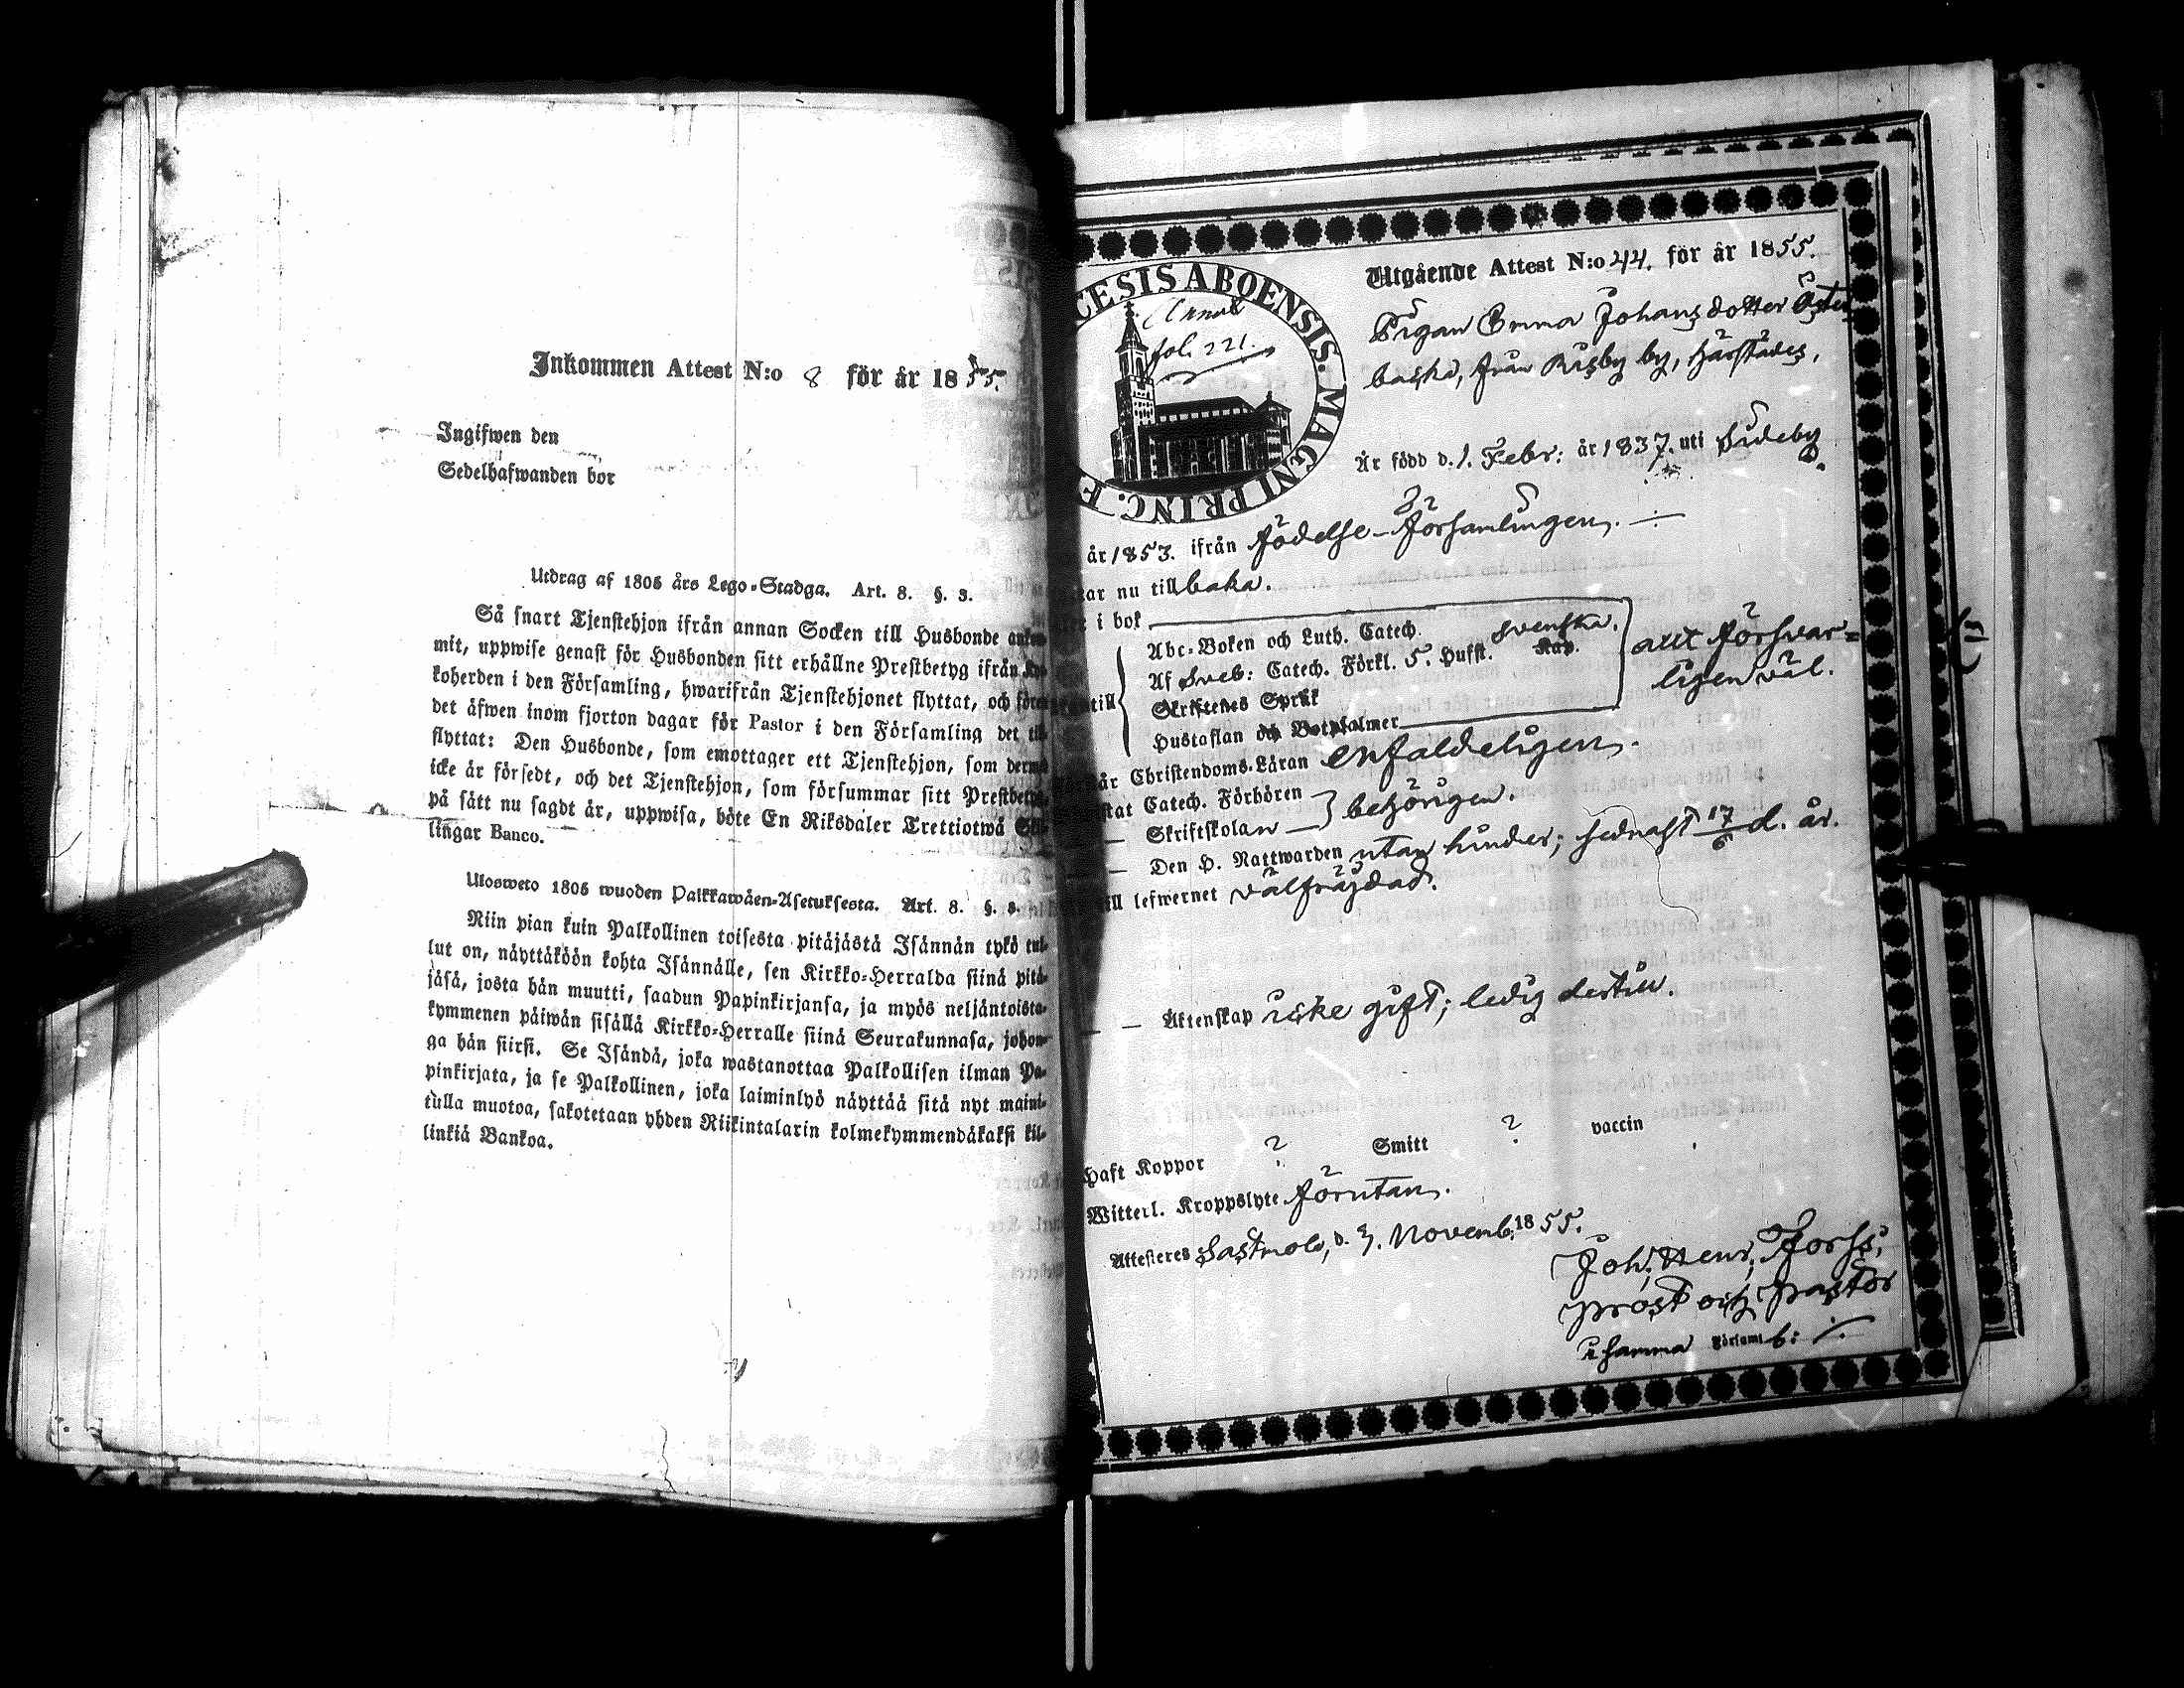 Inkommen Attest N:o 8 för år 1855.
Ingifwen den
Sedelhafwanden bor
Utdrag af 1805 års Lego-Stadga. Art. 8. §. 3.
Så snart Tjenstehjon ifrån annan Socken till Husbonde
mit, uppwise genast för Husbonden sitt erhållne Prestbetyg ifrån
koherden i den Församling, hwarifrån Tjenstehjonet flyttat, och
det äfwen inom fjorton dagar för Pastor i den Församling det
flyttat: Den Husbonde, som emottager ett Tjenstehjon, som
icke är försedt, och det Tjenstehjon, som försummar sitt
på sätt nu sagdt är, uppwisa, böte En Riksdaler Trettiotwå
lingar Banco.
Ulosweto 1805 wuoden Palkkawäen-Asetuksesta. Art. 8. §. 3.
Niin pian kuin Palkollinen toisesta pitäjästä Isännän tykö tul-
lut on, näyttäköön kohta Isännälle, sen Kirkko-Herralda siinä pitä-
jäsä, josta hän muutti, saadun Papinkirjansa, ja myös neljäntoista-
kymmenen päiwän sisällä Kirkko-Herralle siinä Seurakunnasa, johon-
ga hän siirsi. Se Isändä, joka wastanottaa Palkollisen ilman Pa-
pinkirjata, ja se Palkollinen, joka laiminlyö näyttää sitä nyt maini-
tulla muotoa, sakotetaan yhden Riikintalarin kolmekymmendäkaksi kil-
linkiä Bankoa.
CESIS ABOENSIS. MAGNI PRINC. F
Annot
fol. 221.
Utgående Attest N:o 44. för år 1855.
Pigan Emma Johansdotter Öster
backa, från Risby by, härstädes,
Är född d. 1. Febr: år 1837. uti Sideby.
år 1853. ifrån födelse-församlingen.
ar nu till baka.
i bok
Abc-Boken och Luth. Catech. svenska.
Af Sveb: Catech. Förkl. 5. Hufst. Kap.
Skriftenes Språk
Hustaflan och Botpsalmer
allt försvar=
ligen väl.
till
Christendoms-Läran enfaldeligen.
Catech. Förhören
— Skriftskolan — } behörigen.
— — Den H. Nattwarden utan hinder; sednast 17/6 d. år.
till lefwernet välfräjdad.
— — Äktenskap icke gift; ledig dertill.
Haft Koppor ? Smitt ? vaccin
Witterl. Kroppslyte förutan.
Attesteres Sastmola, d. 3. Novemb. 1855.
Joh. Henr. Forss,
prost och pastor
i samma Församl b: